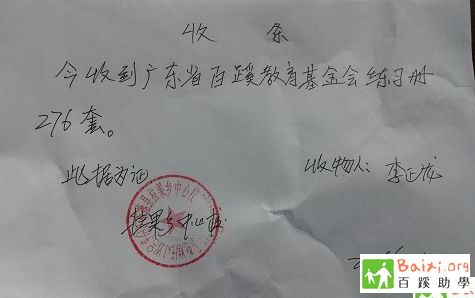 收 条
今收到广东省百蹊教育基金会练习册
276套。
此据为证
收物人：李正龙
拉果乡中心校
Baixi.org
百蹊助學